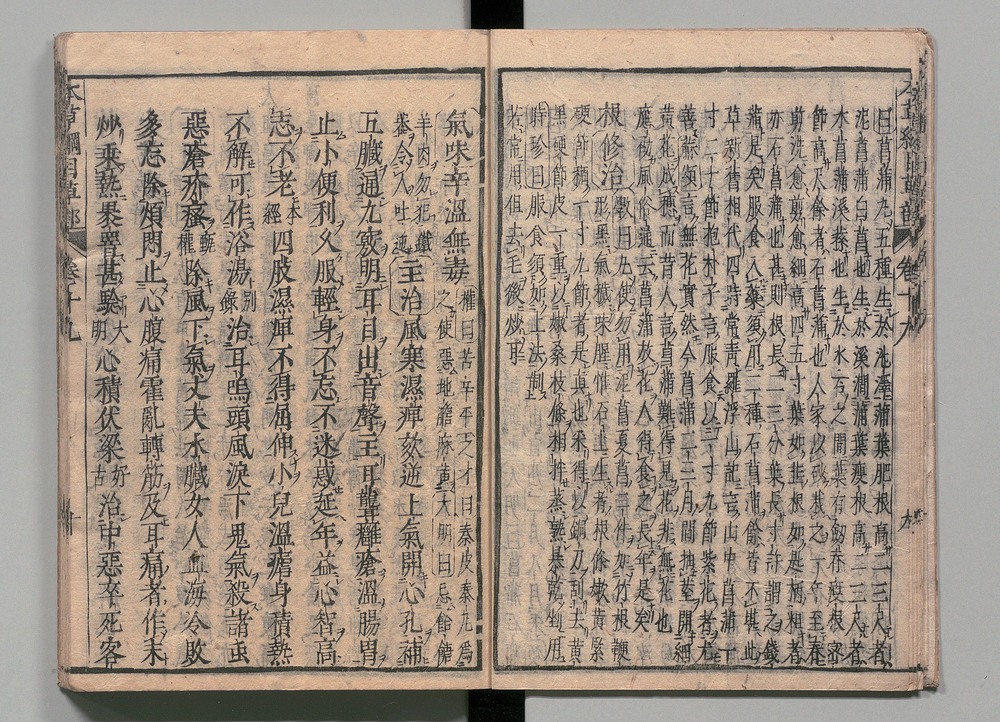 本草綱目草部 卷十九 九
曰菖蒲凡五種生於池澤蒲葉肥根高二三尺者
泥菖蒲白菖也生於溪澗蒲葉瘦根高二三尺者
水菖蒲溪蓀也生於水石之間葉有劒脊瘦根密
節高尺餘者石菖蒲也人家以砂栽之一年至春
剪洗愈剪愈細高四五寸葉如韭根如匙柄粗者
亦石菖蒲也甚則根長二三分葉長寸許謂之錢
蒲是矣服食入藥須用二種石菖蒲餘皆不堪此
草新舊相代四時常青羅浮山記言山中菖蒲一
寸二十節抱朴子言服食以一寸九節紫花者尤
善蘇頌言無花實然今菖蒲二三月間抽莖開細
黃花成穗而昔人言菖蒲難得見花非無花也
應劭風俗通云菖蒲放花人得食之長年是矣
根修治斅曰凡使勿用泥菖夏菖二件如竹根鞭
形黑氣穢味腥惟石上生者根條嫩黃緊
硬節稠一寸九節者是真也采得以銅刀刮去黃
黑硬節皮一重以嫩桑枝條相拌蒸熟暴乾剉用
時珍曰服食須如上法制
若常用但去毛微炒耳
氣味辛溫無毒權曰苦辛平之才曰秦皮秦艽為
之使惡地膽麻黃大明曰忌飴餹
羊肉勿犯鐵
器令人吐逆主治風寒濕痹欬逆上氣開心孔補
五臟通九竅明耳目出音聲主耳聾癰瘡溫腸胃
止小便利久服輕身不忘不迷惑延年益心智高
志不老本經四肢濕痹不得屈伸小兒溫瘧身積熱
不解可作浴湯別錄治耳鳴頭風淚下鬼氣殺諸蟲
惡瘡疥瘙甄權除風下氣丈夫水臟女人血海冷敗
多忘除煩悶止心腹痛霍亂轉筋及耳痛者作末
炒乘熱裹罯甚驗大明心積伏梁好古治中惡卒死客
本草綱目草部 卷十九 十